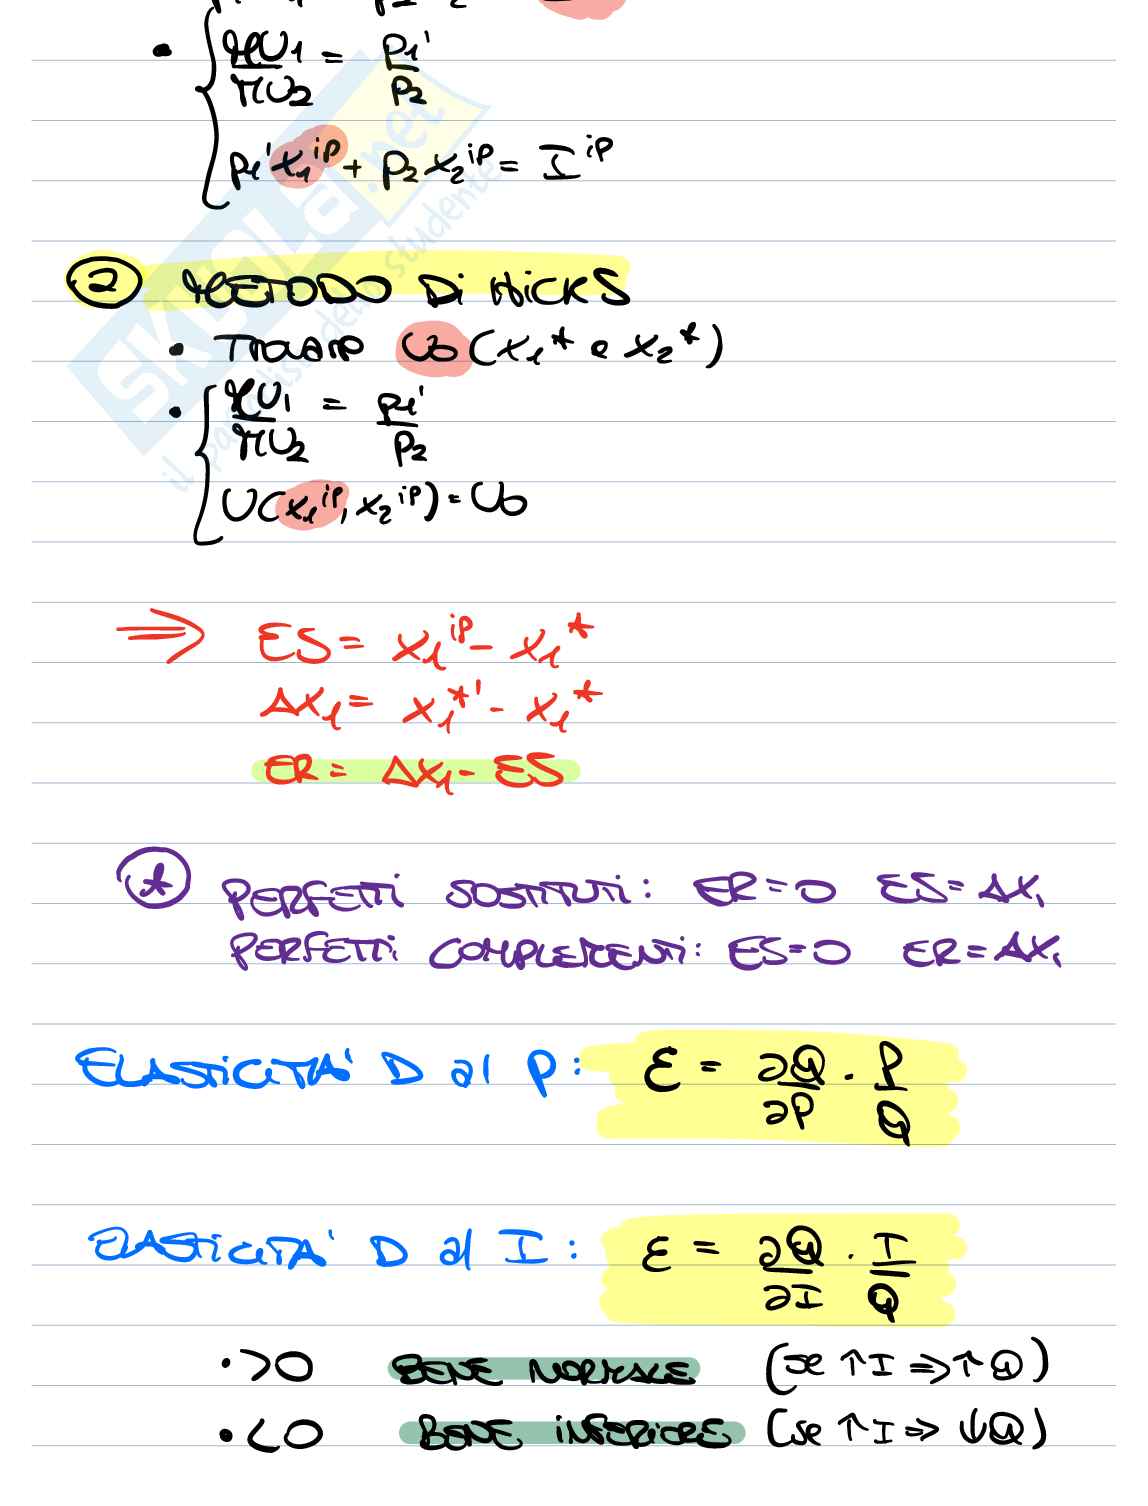 • { MU1/MU2 = p1'/p2
p1'x1^ip + p2x2^ip = I^ip
② METODO Di HICKS
• TROVARE U0 (x1* e x2*)
• { MU1/MU2 = p1'/p2
U(x1^ip, x2^ip) = U0
⇒ ES = x1^ip - x1*
Δx1 = x1*' - x1*
ER = Δx1 - ES
⊛ PERFETTI SOSTITUTI: ER=0 ES=Δx1
PERFETTI COMPLEMENTI: ES=0 ER=Δx1
ELASTICITA' D al P: ε = ∂Q/∂P · P/Q
ELASTICITA' D al I: ε = ∂Q/∂I · I/Q
• >0 BENE NORMALE (se ↑I ⇒ ↑Q)
• <0 BENE INFERIORE (se ↑I ⇒ ↓Q)
SKUOLA.net